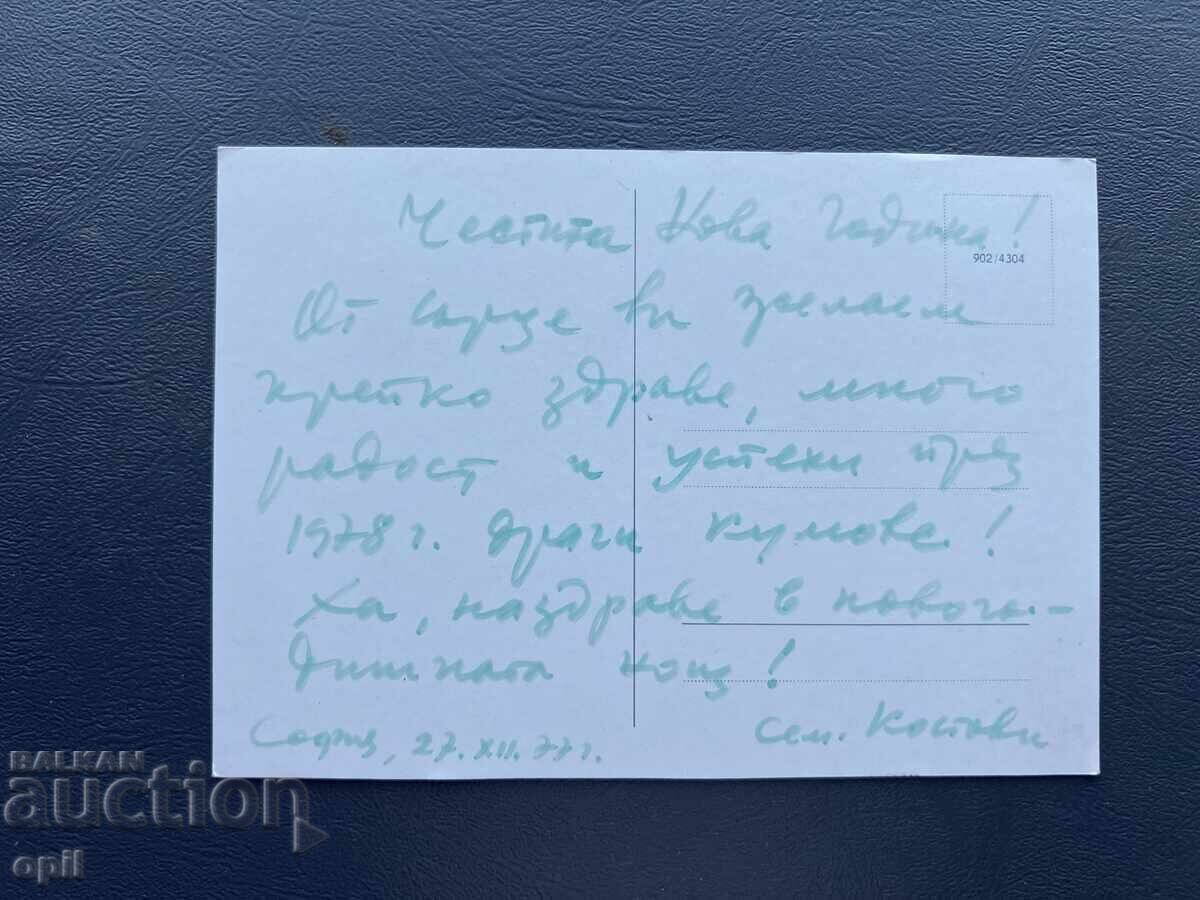 Честита Нова Година!
902/4304
От сърце ви желаем
крепко здраве, много
радост и успехи през
1978 г. драги кумове!
Ха, наздраве в нового-
дишната нощ!
София, 27.XII.77 г.
сем. Костови
BALKAN
auction
opil